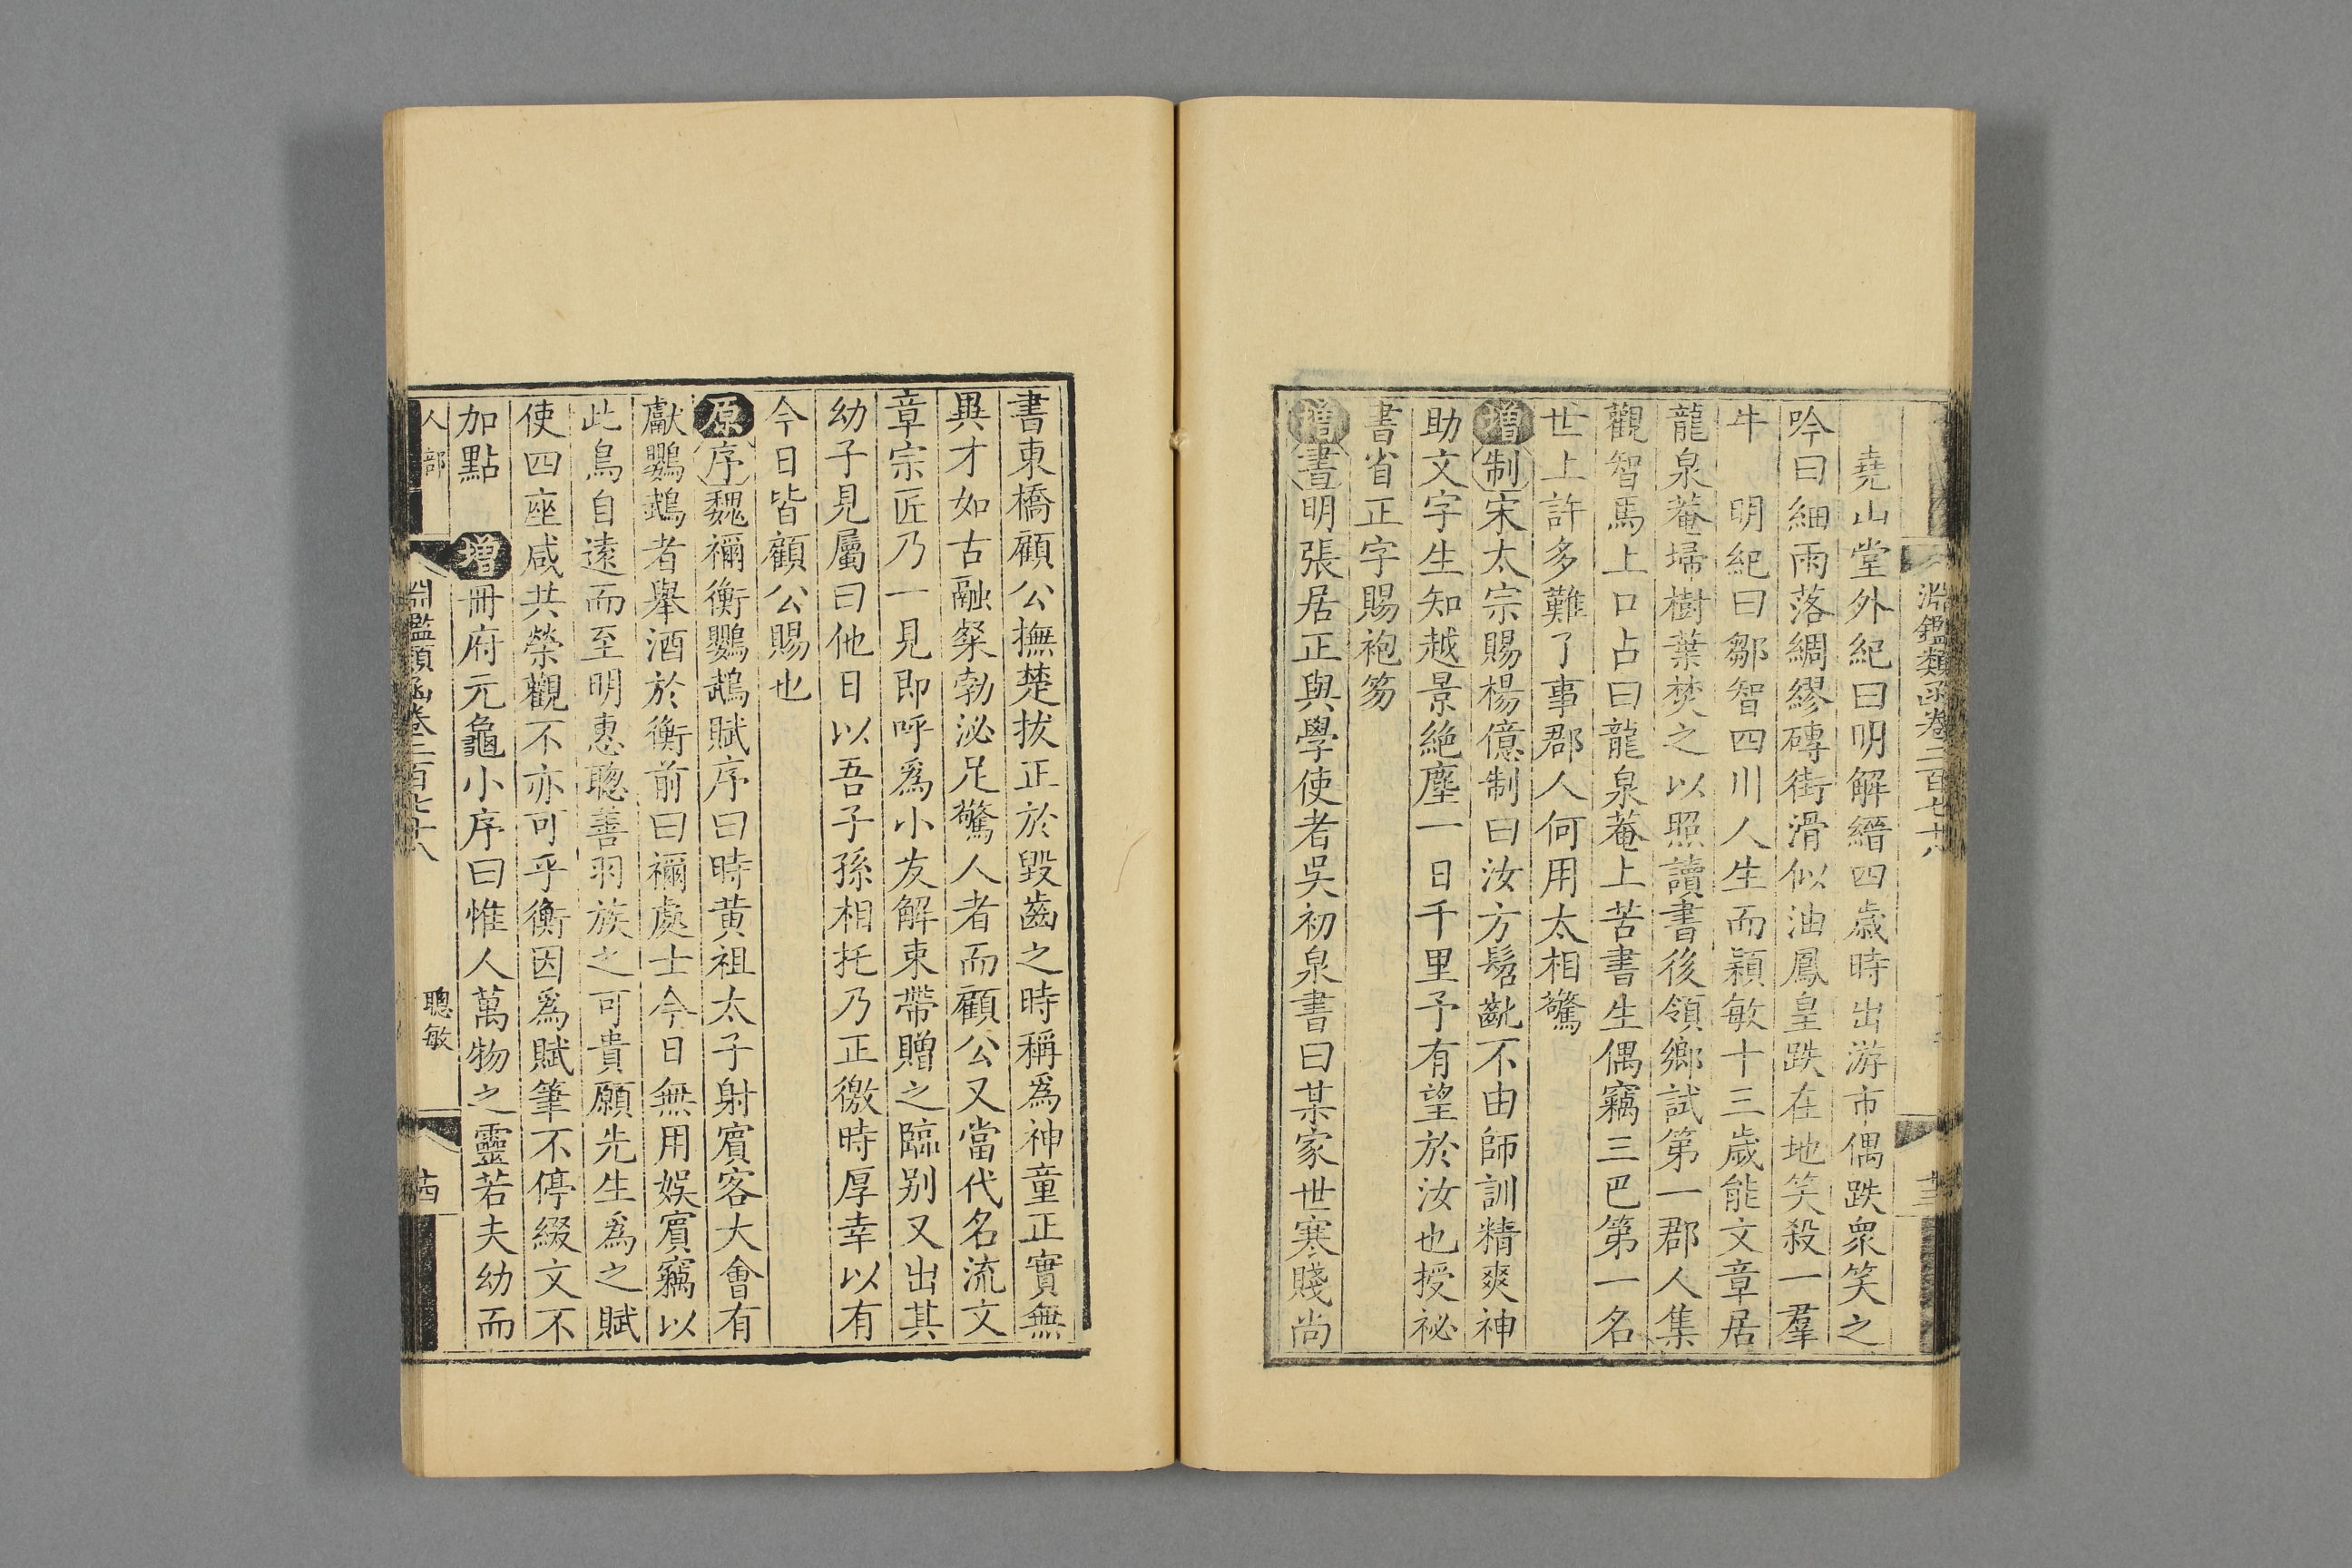 淵鑑類函卷二百七十八
廿三
堯山堂外紀曰明解縉四歲時出游市偶跌衆笑之
吟曰細雨落綢繆磚街滑似油鳳皇跌在地笑殺一羣
牛　明紀曰鄒智四川人生而穎敏十三歲能文章居
龍泉菴埽樹葉焚之以照讀書後領鄉試第一郡人集
觀智馬上口占曰龍泉菴上苦書生偶竊三巴第一名
世上許多難了事郡人何用太相驚
增制宋太宗賜楊億制曰汝方髫齔不由師訓精爽神
助文字生知越景絶塵一日千里予有望於汝也授祕
書省正字賜袍笏
增書明張居正與學使者吳初泉書曰某家世寒賤尚
書東橋顧公撫楚拔正於毀齒之時稱爲神童正實無
異才如古融粲勃泌足驚人者而顧公又當代名流文
章宗匠乃一見即呼爲小友解束帶贈之臨别又出其
幼子見屬曰他日以吾子孫相托乃正徼時厚幸以有
今日皆顧公賜也
原序魏禰衡鸚鵡賦序曰時黄祖太子射賓客大會有
獻鸚鵡者舉酒於衡前曰禰處士今日無用娛賓竊以
此鳥自遠而至明惠聰善羽族之可貴願先生爲之賦
使四座咸共榮觀不亦可乎衡因爲賦筆不停綴文不
加點　增冊府元龜小序曰惟人萬物之靈若夫幼而
人部
淵鑑類函卷二百七十八
聰敏
廿四